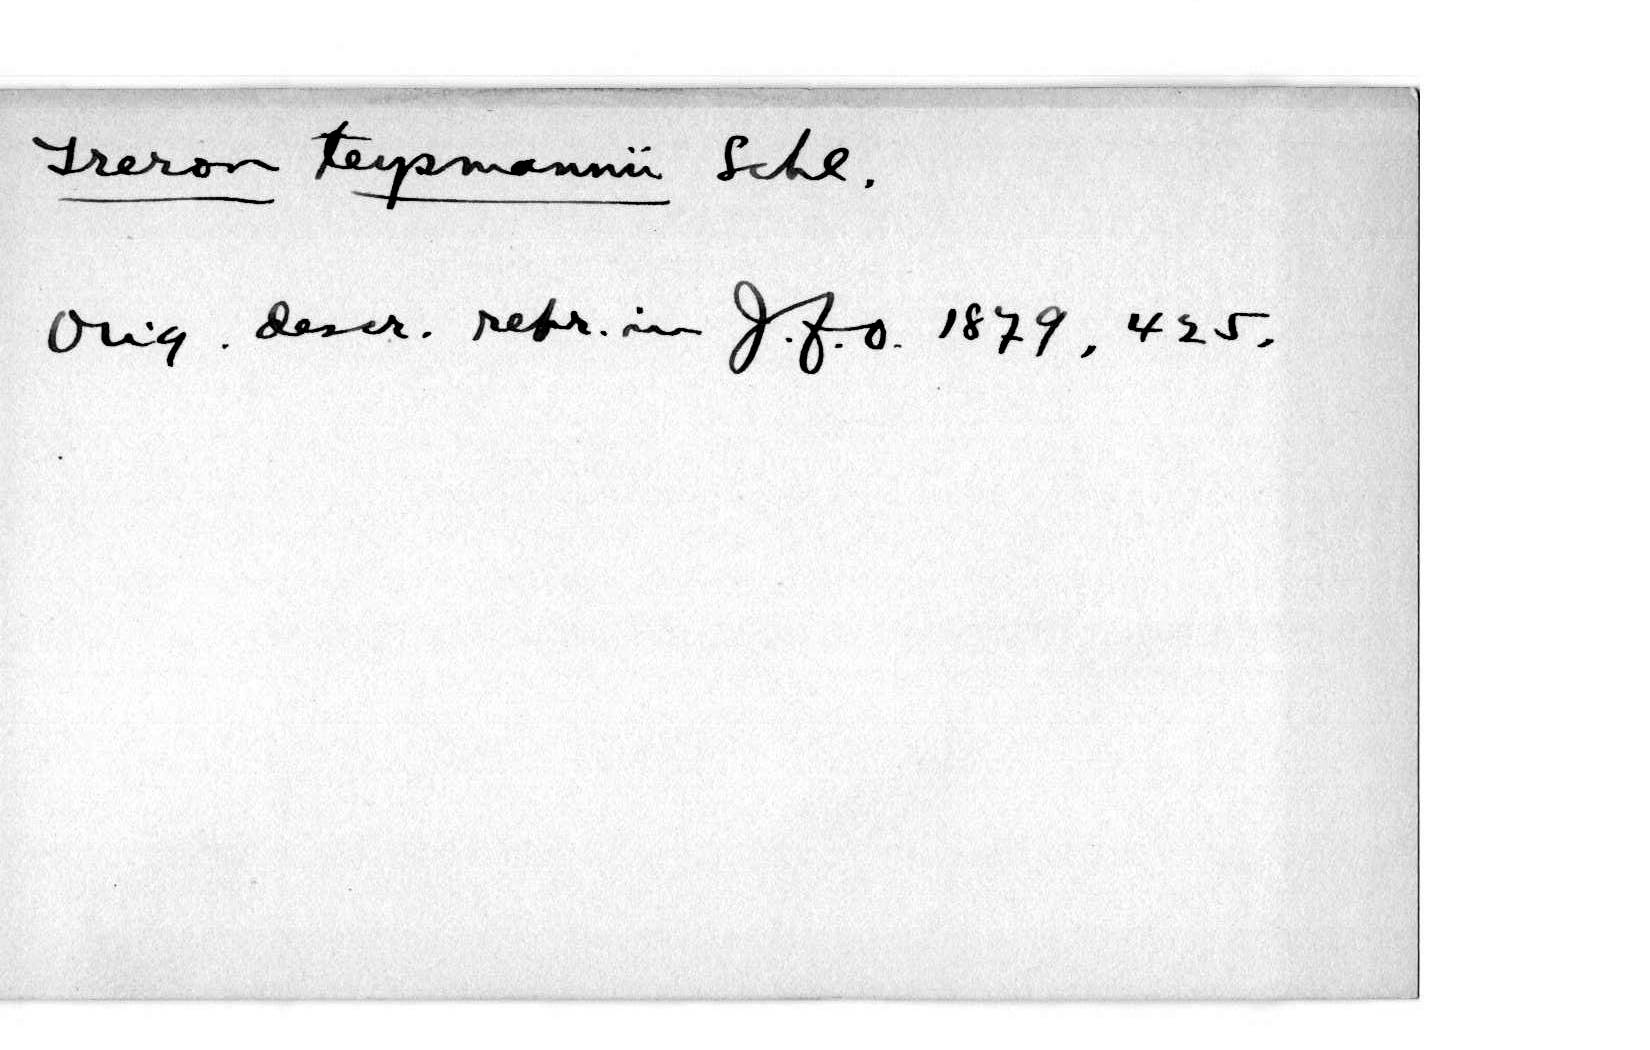 Treron teysmannii Schl.
Orig. descr. repr. in J.f.O. 1879, 425.